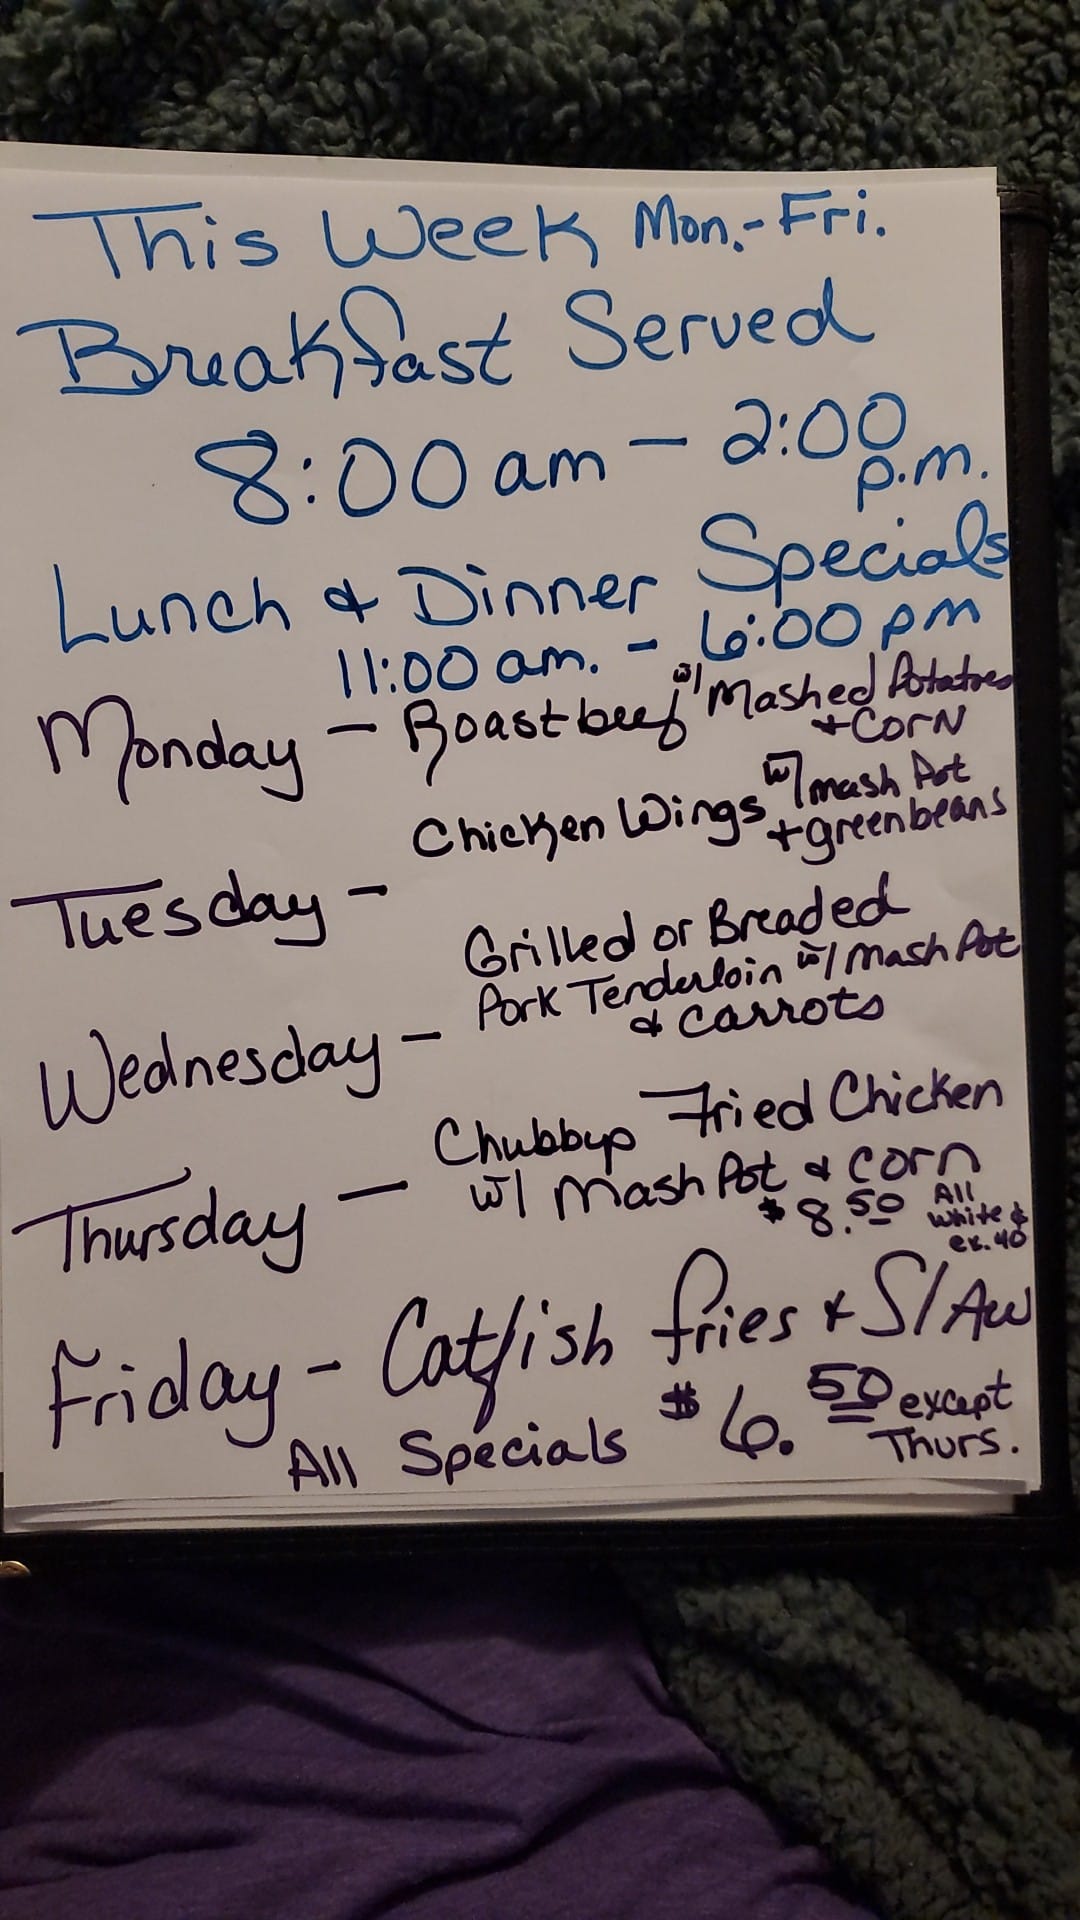 This Week Mon.-Fri.
Breakfast Served
8:00 am - 2:00 p.m.
Lunch & Dinner Specials
11:00 am. - 6:00 pm
Monday - Roastbeef w/ Mashed Potatoes
+ Corn
Chicken Wings w/ mash Pot
+ greenbeans
Tuesday -
Grilled or Breaded
Pork Tenderloin w/ mash Pot
& carrots
Wednesday -
Chubbyp Fried Chicken
w/ mash Pot & corn
Thursday -
$8.50 All
white &
ex. 40
Friday - Catfish fries + Slaw
All Specials $6.50 except
Thurs.